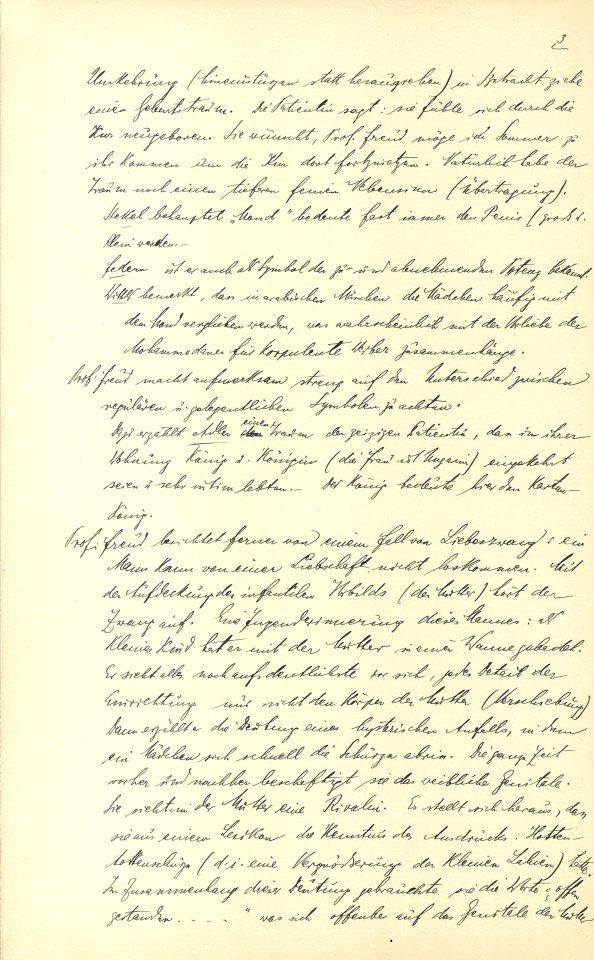 3
Umkehrung (hineinstürzen statt herausziehen) in Betracht ziehe
einen Geburtstraum. Die Patientin sagt: sie fühle sich durch die
Kur neugeboren. Sie wünscht, Prof. Freud möge im Sommer zu
ihr kommen um die Kur dort fortzusetzen. Natürlich habe der
Traum noch einen tieferen feinen Nebensinn (Übertragung).
Stekel behauptet „Mond" bedeute fast immer den Penis (groß u.
klein werden.–
Federn ist er auch als Symbol der zu- und abnehmenden Potenz bekannt
Wittels bemerkt, dass in arabischen Märchen die Mädchen häufig mit
dem Mond verglichen werden, was wahrscheinlich mit der Vorliebe der
Mohammedaner für korpulente Weiber zusammenhänge.
Prof. Freud macht aufmerksam streng auf den Unterschied zwischen
regulären u. gelegentlichen Symbolen zu achten.
Dazu erzählt Adler einen Traum der geizigen Patientin, dass in ihrer
Wohnung König u. Königin (die Frau ist Ungarin) eingekehrt
seien u sehr intim lebten.– Der König bedeute hier den Karten-
könig.
Prof. Freud berichtet ferner von einem Fall von Liebeszwang: ein
Mann kann von einer Liebschaft nicht loskommen. Mit
der Aufdeckung des infantilen Vorbilds (der Mutter) hört der
Zwang auf. Eine Jugenderinnerung dieses Mannes: als
kleines Kind hat er mit der Mutter in einer Wanne gebadet.
Er sieht alles noch aufs deutlichste vor sich, jedes Detail der
Einrichtung nur nicht den Körper der Mutter (Verschiebung)
Dann erzählt er die Deutung eines hysterischen Anfalls, in dem
ein Mädchen sich schnell die Schürze abriss. Die ganze Zeit
vorher und nachher beschäftigt sie das weibliche Genitale.
Sie sieht in der Mutter eine Rivalin. Es stellt sich heraus, dass
sie aus einem Lexikon die Kenntnis des Ausdrucks: Hotten-
tottenschürze (d.i. eine Vergrößerung der kleinen Labien) hatte.
Im Zusammenhang dieser Deutung gebrauchte sie die Worte: „offen
gestanden . . . . " was sich offenbar auf das Genitale der Mutter